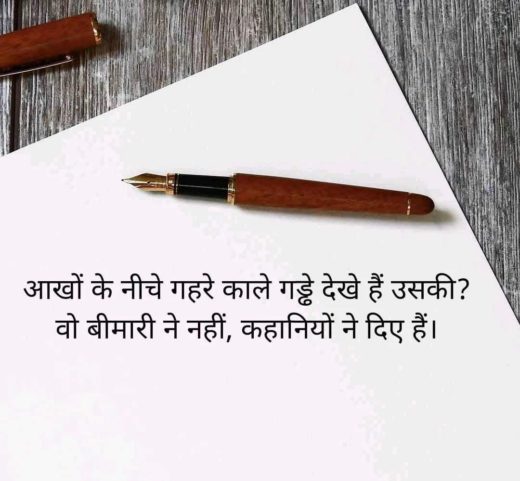 आखों के नीचे गहरे काले गड्ढे देखे हैं उसकी?
वो बीमारी ने नहीं, कहानियों ने दिए हैं।